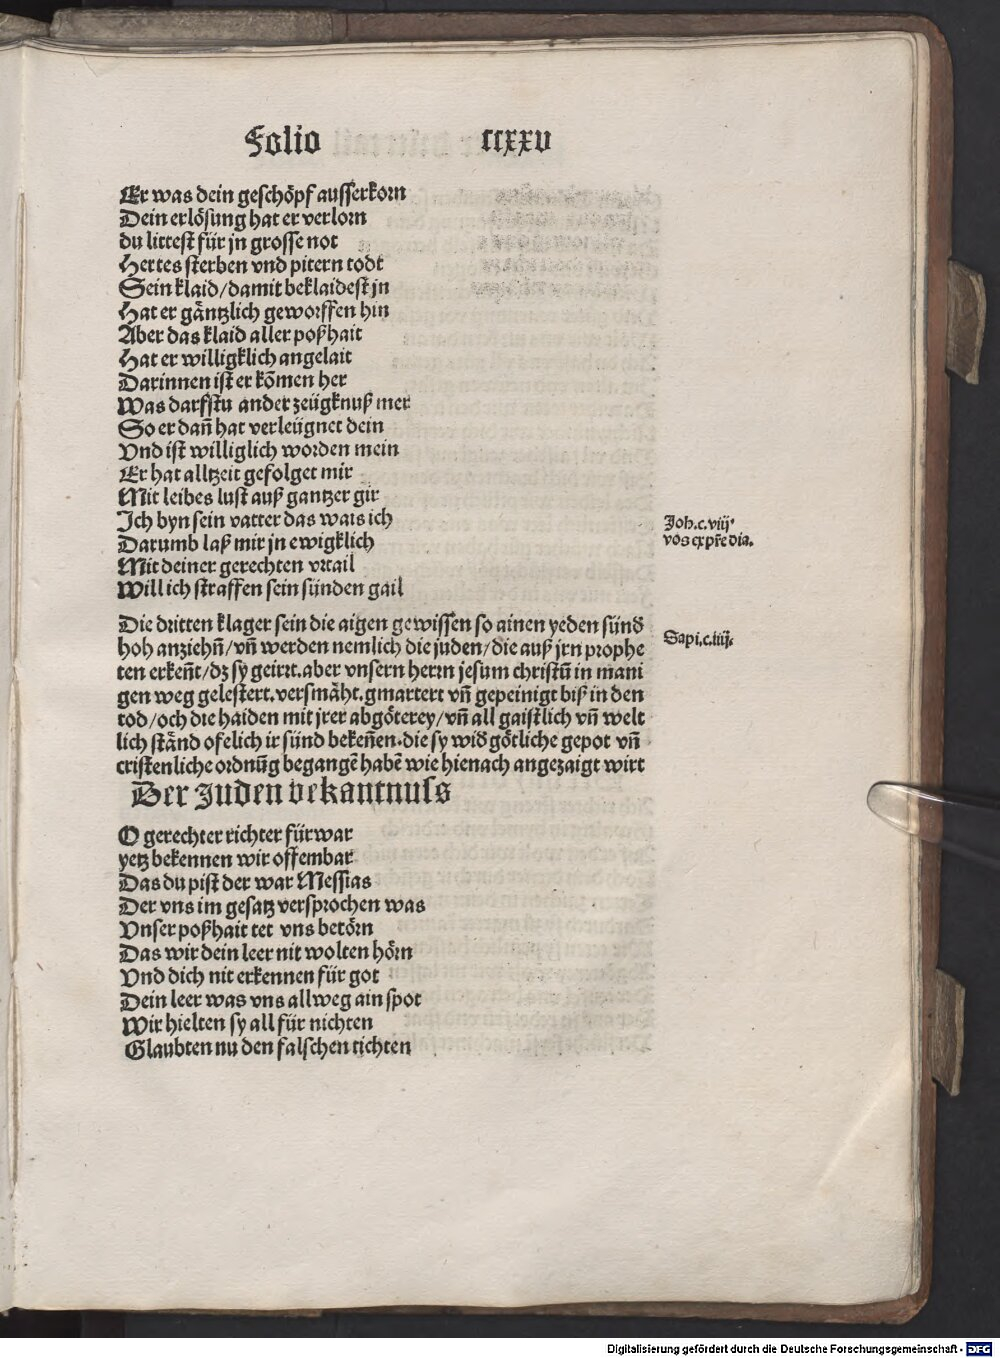 Folio ccxxv
Er was dein geschöpf ausserkorn
Dein erlösung hat er verlorn
du littest für jn grosse not
Hertes sterben vnd pitern todt
Sein klaid/damit beklaidest jn
Hat er gäntzlich geworffen hin
Aber das klaid aller poßhait
Hat er willigklich angelait
Darinnen ist er kōmen her
Was darfstu ander zeügknuß mer
So er dañ hat verleügnet dein
Vnd ist williglich worden mein
Er hat alltzeit gefolget mir
Mit leibes lust auß gantzer gir
Ich byn sein vatter das wais ich
Darumb laß mir jn ewigklich
Mit deiner gerechten vrtail
Will ich straffen sein sünden gail
Joh.c.viij.
vos ex pr̄e dia.
Die dritten klager sein die aigen gewissen so ainen yeden sünd
hoh anziehñ/vñ werden nemlich die juden/die auß jrn prophe
ten erkeñt/dz sy geirrt.aber vnsern herrn jesum christū in mani
gen weg gelestert.versmäht.gmartert vñ gepeinigt biß in den
tod/och die haiden mit jrer abgöterey/vñ all gaistlich vñ welt
lich ständ ofelich ir sünd bekeñen.die sy wid götliche gepot vñ
cristenliche ordnūg begangē habē wie hienach angezaigt wirt
Sapi.c.iiij.
Der Juden bekantnuss
O gerechter richter fürwar
yetz bekennen wir offembar
Das du pist der war Messias
Der vns im gesatz versprochen was
Vnser poßhait tet vns betörn
Das wir dein leer nit wolten hörn
Vnd dich nit erkennen für got
Dein leer was vns allweg ain spot
Wir hielten sy all für nichten
Glaubten nu den falschen tichten
Digitalisierung gefördert durch die Deutsche Forschungsgemeinschaft - DFG